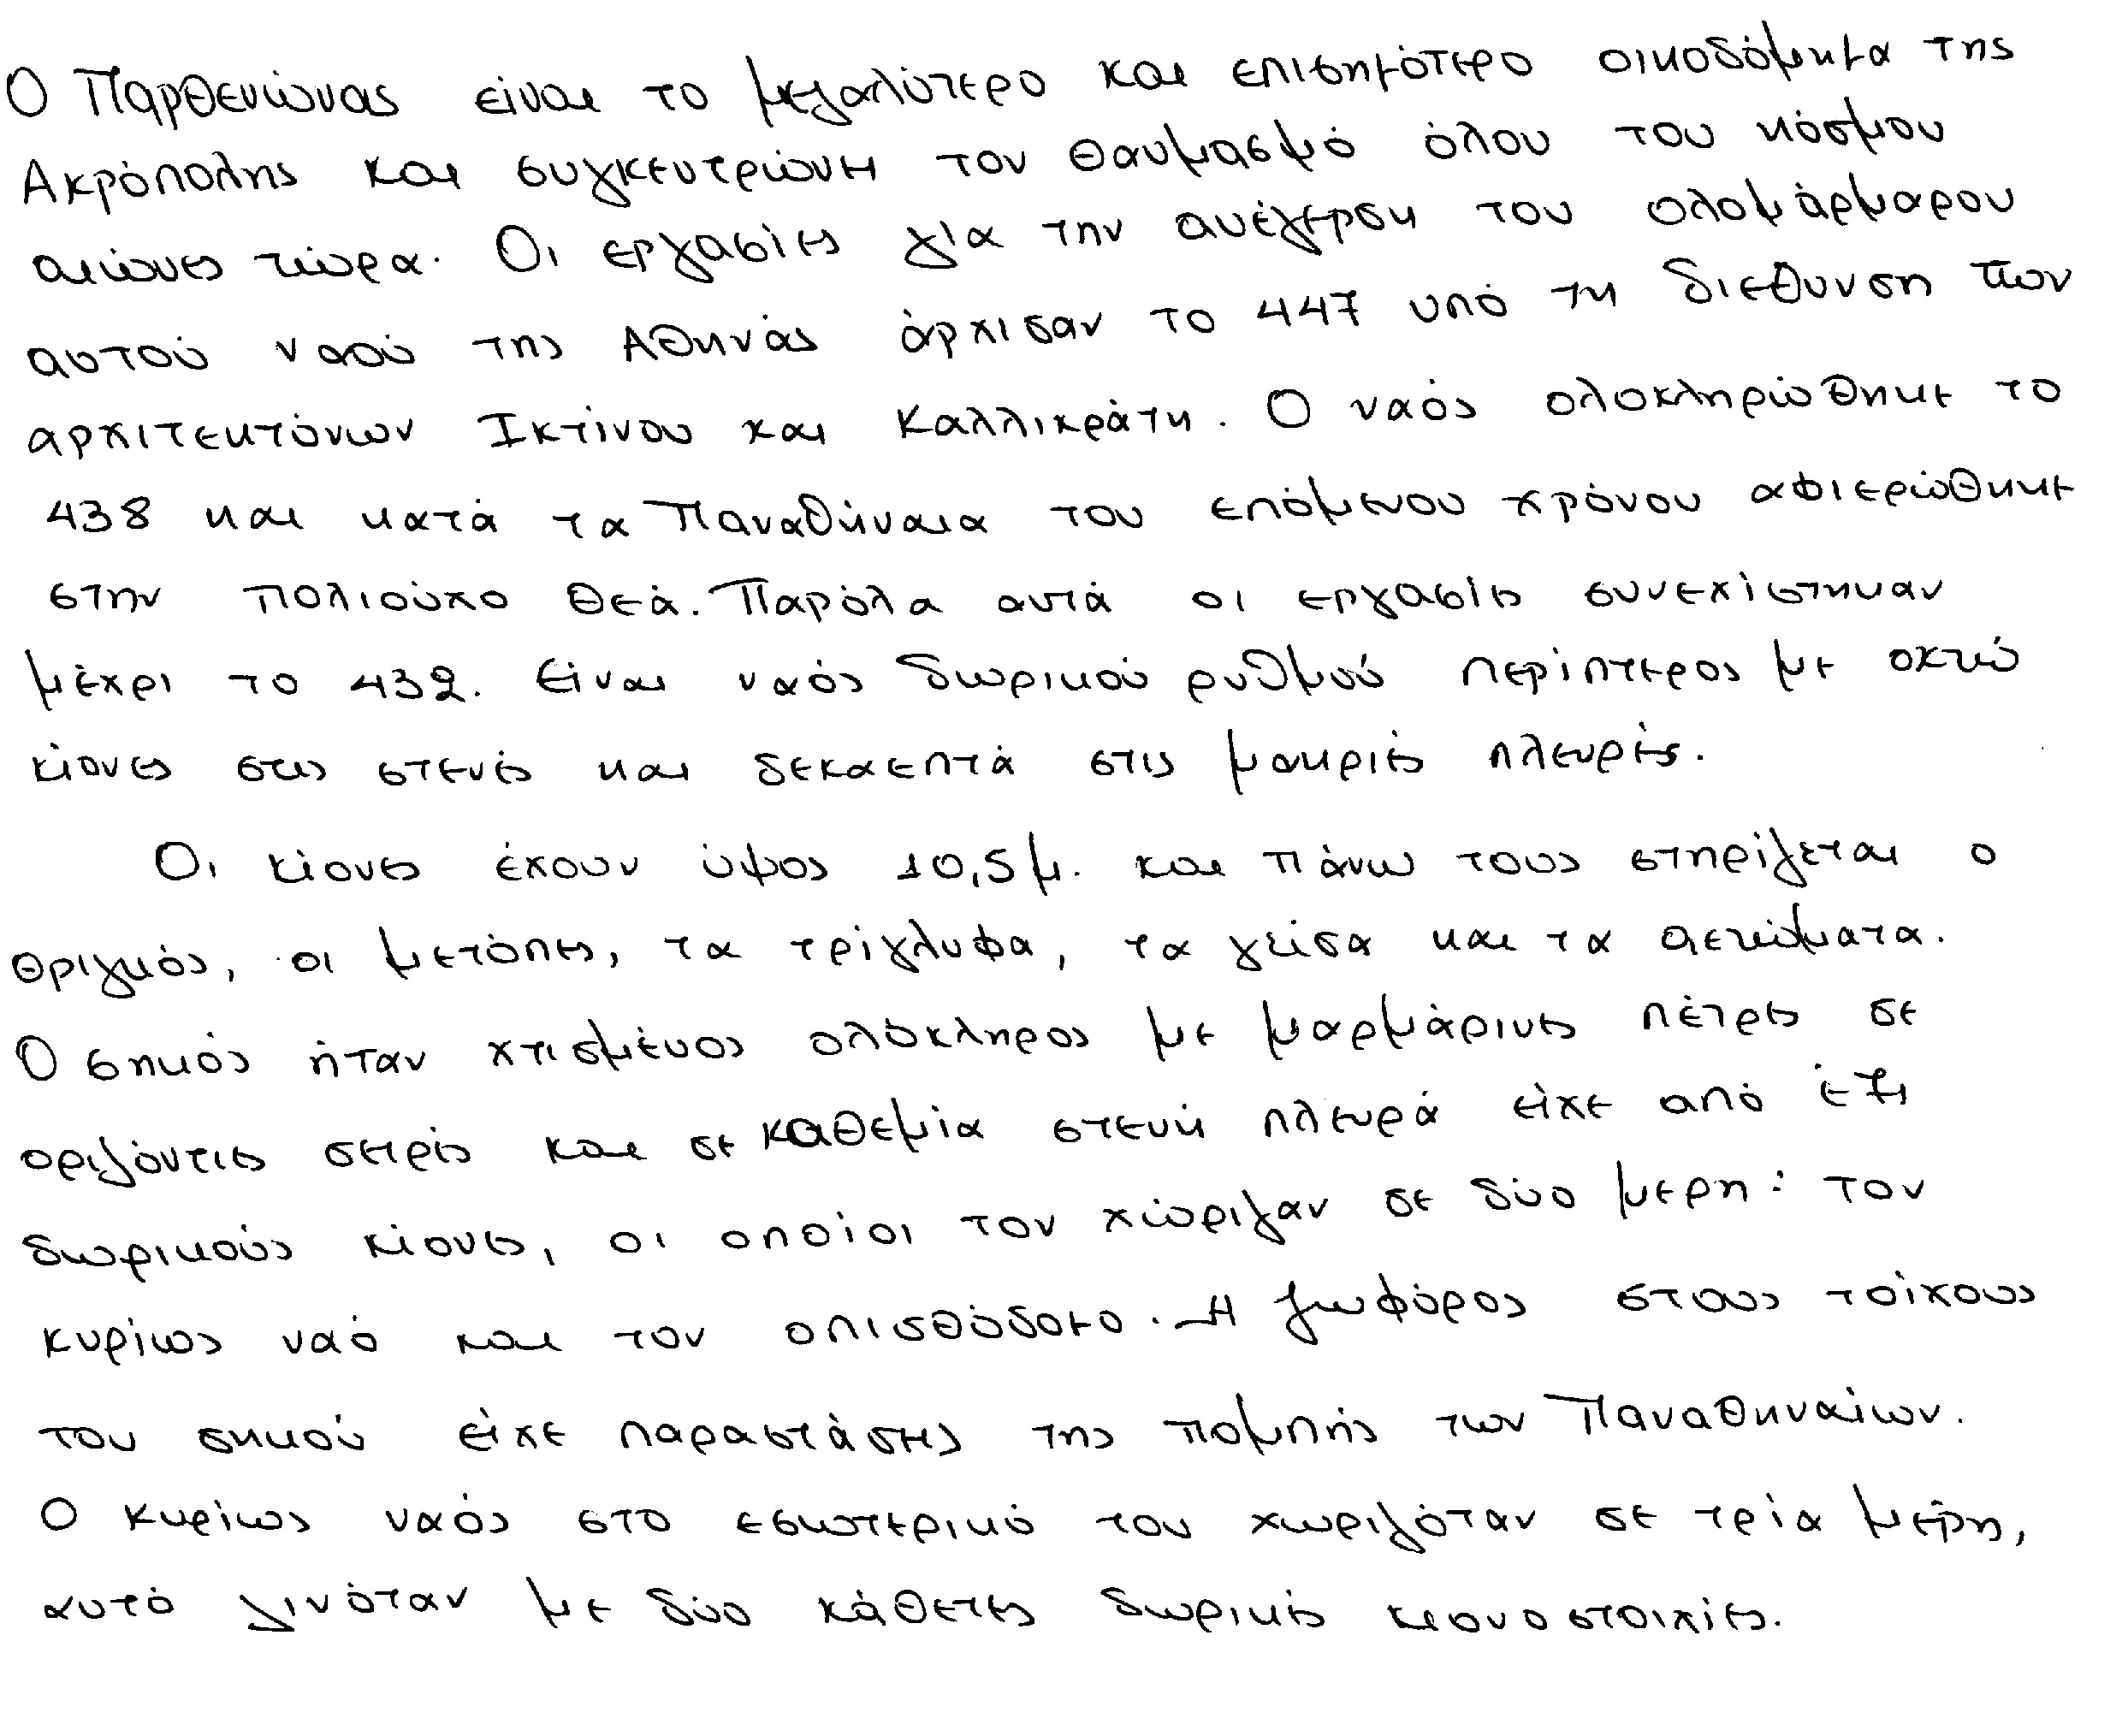 Ο Παρθενώνας είναι το μεγαλύτερο και επισημότερο οικοδόμημα της
Ακρόπολης και συγκεντρώνει τον θαυμασμό όλου του κόσμου
αιώνες τώρα. Οι εργασίες για την ανέγερση του ολομάρμαρου
αυτού ναού της Αθηνάς άρχισαν το 447 υπό τη διεύθυνση των
αρχιτεκτόνων Ικτίνου και Καλλικράτη. Ο ναός ολοκληρώθηκε το
438 και κατά τα Παναθήναια του επόμενου χρόνου αφιερώθηκε
στην πολιούχο θεά. Παρόλα αυτά οι εργασίες συνεχίστηκαν
μέχρι το 432. Είναι ναός δωρικού ρυθμού περίπτερος με οκτώ
κίονες στις στενές και δεκαεπτά στις μακριές πλευρές.
Οι κίονες έχουν ύψος 10,5μ. και πάνω τους στηρίζεται ο
θριγκός, οι μετόπες, τα τρίγλυφα, τα γείσα και τα αετώματα.
Ο σηκός ήταν χτισμένος ολόκληρος με μαρμάρινες πέτρες σε
οριζόντιες σειρές και σε καθεμία στενή πλευρά είχε από έξι
δωρικούς κίονες, οι οποίοι τον χώριζαν σε δύο μερη: τον
κυρίως ναό και τον οπισθόδομο. Η ζωφόρος στους τοίχους
του σηκού είχε παραστάσεις της πομπής των Παναθηναίων.
Ο κυρίως ναός στο εσωτερικό του χωριζόταν σε τρία μέρη,
αυτό γινόταν με δύο κάθετες δωρικές κιονοστοιχίες.